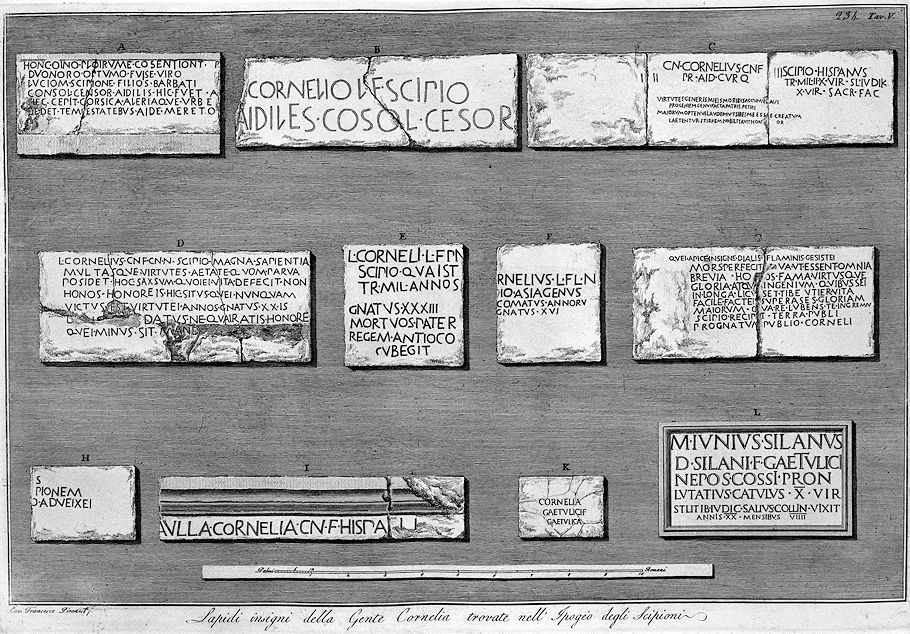 234 Tav. V.
A
HONCOINO·PLOIRVME·COSENTIONT·
DVONORO·OPTVMO·FVISE·VIRO
LVCIOM·SCIPIONE·FILIOS·BARBATI
CONSOL·CENSOR·AIDILIS·HIC·FVET·A
HEC·CEPIT·CORSICA·ALERIAQVE·VRBE
DEDET·TEMPESTATEBVS·AIDE·MERETO
B
CORNELIO L·F SCIPIO
AIDILES·COSOL·CESOR
C
CN·CORNELIVS·CN·F
PR·AID·CVR·Q
SCIPIO·HISPANVS
TR·MIL·II·X·VIR·SL·IVDIK
X·VIR·SACR·FAC
D
L·CORNELIVS·CN·F·CN·N·SCIPIO·MAGNA·SAPIENTIA
MVLTASQVE·VIRTVTES·AETATE·QVOM·PARVA
POSIDET·HOC·SAXSVM·QVOIEI·VITA·DEFECIT·NON
HONOS·HONORE·IS·HIC·SITVS·QVEI·NVNQVAM
VICTVS VIRTVTEI·ANNOS·GNATVS·XX·IS
DATVS·NE·QVAIRATIS·HONORE
QVEI·MINVS·SIT·MAND
E
L·CORNELI·L·F·P·N
SCIPIO·QVAIST
TR·MIL·ANNOS
GNATVS·XXXIII
MORTVOS·PATER
REGEM·ANTIOCO
CVBEGIT
F
RNELIVS·L·F·L·N
PIO·ASIAGENVS
COMATVS·ANNORV
GNATVS·XVI
QVEI·APICE·INSIGNE·DIALIS FLAMINIS·GESISTEI
MORS·PERFECIT VT·ESSENT·OMNIA
BREVIA·HONOS·FAMA·VIRTVSQVE
GLORIA·ATQVE INGENIVM·QVIBVS·SEI
IN·LONGA·LICV SET·TIBE·VTIER·VITA
FACILE·FACTEI SVPERASES·GLORIAM
MAIORVM·QVARE·LVBENS·TE·IN·GREMIV
SCIPIO·RECIPIT·TERRA·PVBLI
PROGNATVM PVBLIO·CORNELI
H
S
PIONEM
O·ADVEIXEI
I
AVLLA·CORNELIA·CN·F·HISPALLI
K
CORNELIA
GAETVLICI·F
GAETVLICA
L
M·IVNIVS·SILANVS
D·SILANI·F·GAETVLICI
NEPOS·COSSI·PRON
LVTATIVS·CATVLVS·X·VIR
STLITIB·IVDIC·SALIVS·COLLIN·VIXIT
ANNIS·XX·MENSIBVS VIIII
Palmi Romani
Cav. Francesco Piranesi f.
Lapidi insigni della Gente Cornelia trovate nell' Ipogio degli Scipioni